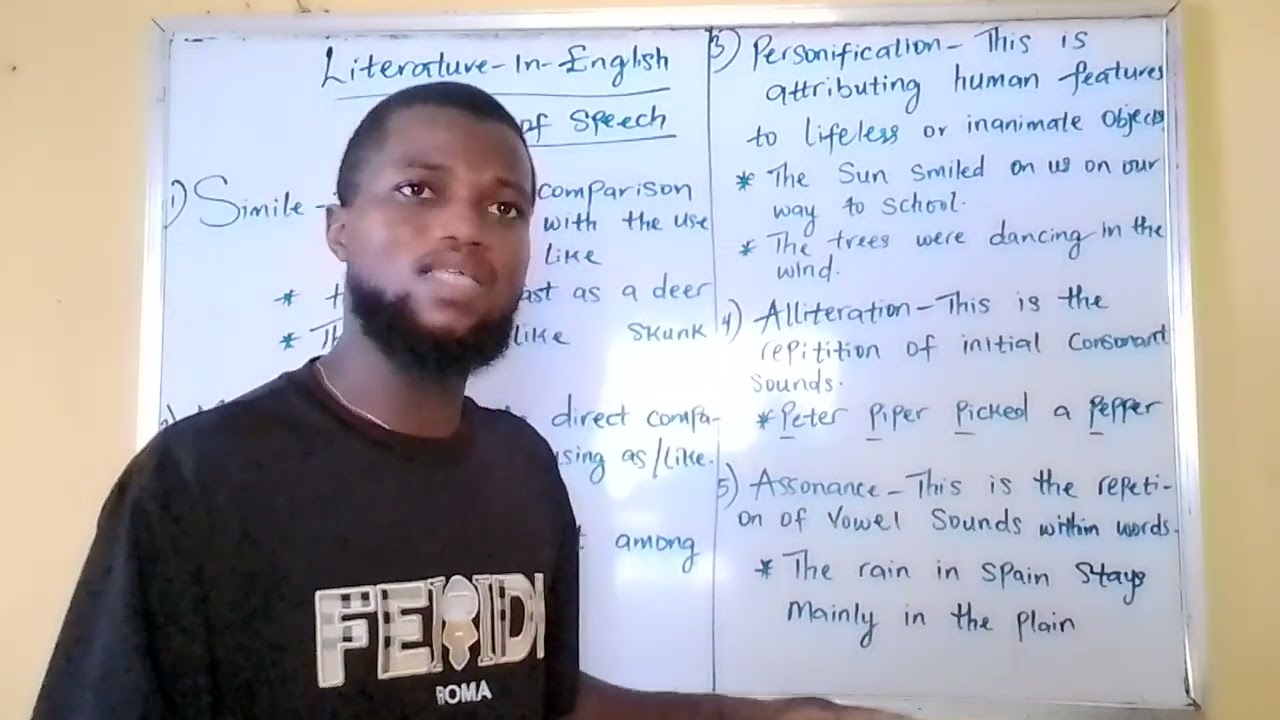 Literature-In-English
of Speech
1) Simile -
comparison
with the use
like
* ast as a deer
* Th like skunk
direct compa-
sing as/like.
among
3) Personification - This is
attributing human features
to lifeless or inanimate Objects
* The Sun smiled on us on our
way to school.
* The trees were dancing in the
wind.
4) Alliteration - This is the
repitition of initial Consonant
Sounds.
* Peter Piper Picked a Pepper
5) Assonance - This is the repeti-
on of Vowel Sounds within words.
* The rain in Spain Stays
Mainly in the plain
ROMA